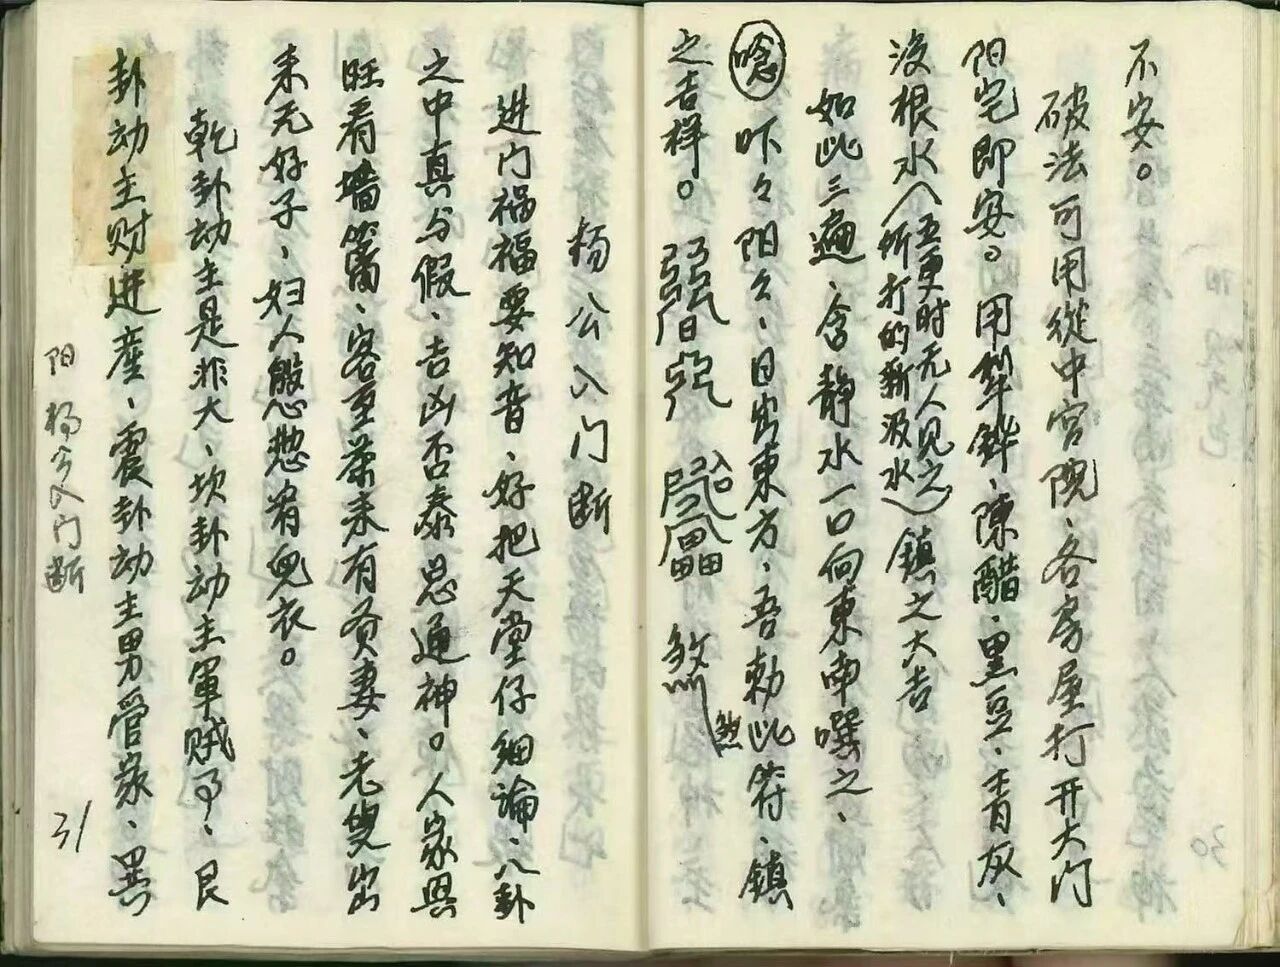 不安。
破法可用從中宫院、各房屋打开大门
阳宅即安。用犁鏵、陳醋、黑豆、青灰、
没根水（五更时无人见之所打的新汲水）鎮之大吉
如此三遍、含静水一口向東南噀之、
唸 吓々阳々、日出東方、吾勅此符、鎮
之吉祥。
煞
煞
30
杨公入门断
进门祸福要知音、好把天堂仔细論、八卦
之中真与假、吉凶否泰思通神。人家興
旺看墙篱、客至茶来有贤妻、老叟出
来无好子、妇人慇懃着皂衣。
乾卦动主是非大、坎卦动主軍贼了、艮
卦动主财进産、震卦动主男管家、巽
阳 杨公入门断
31